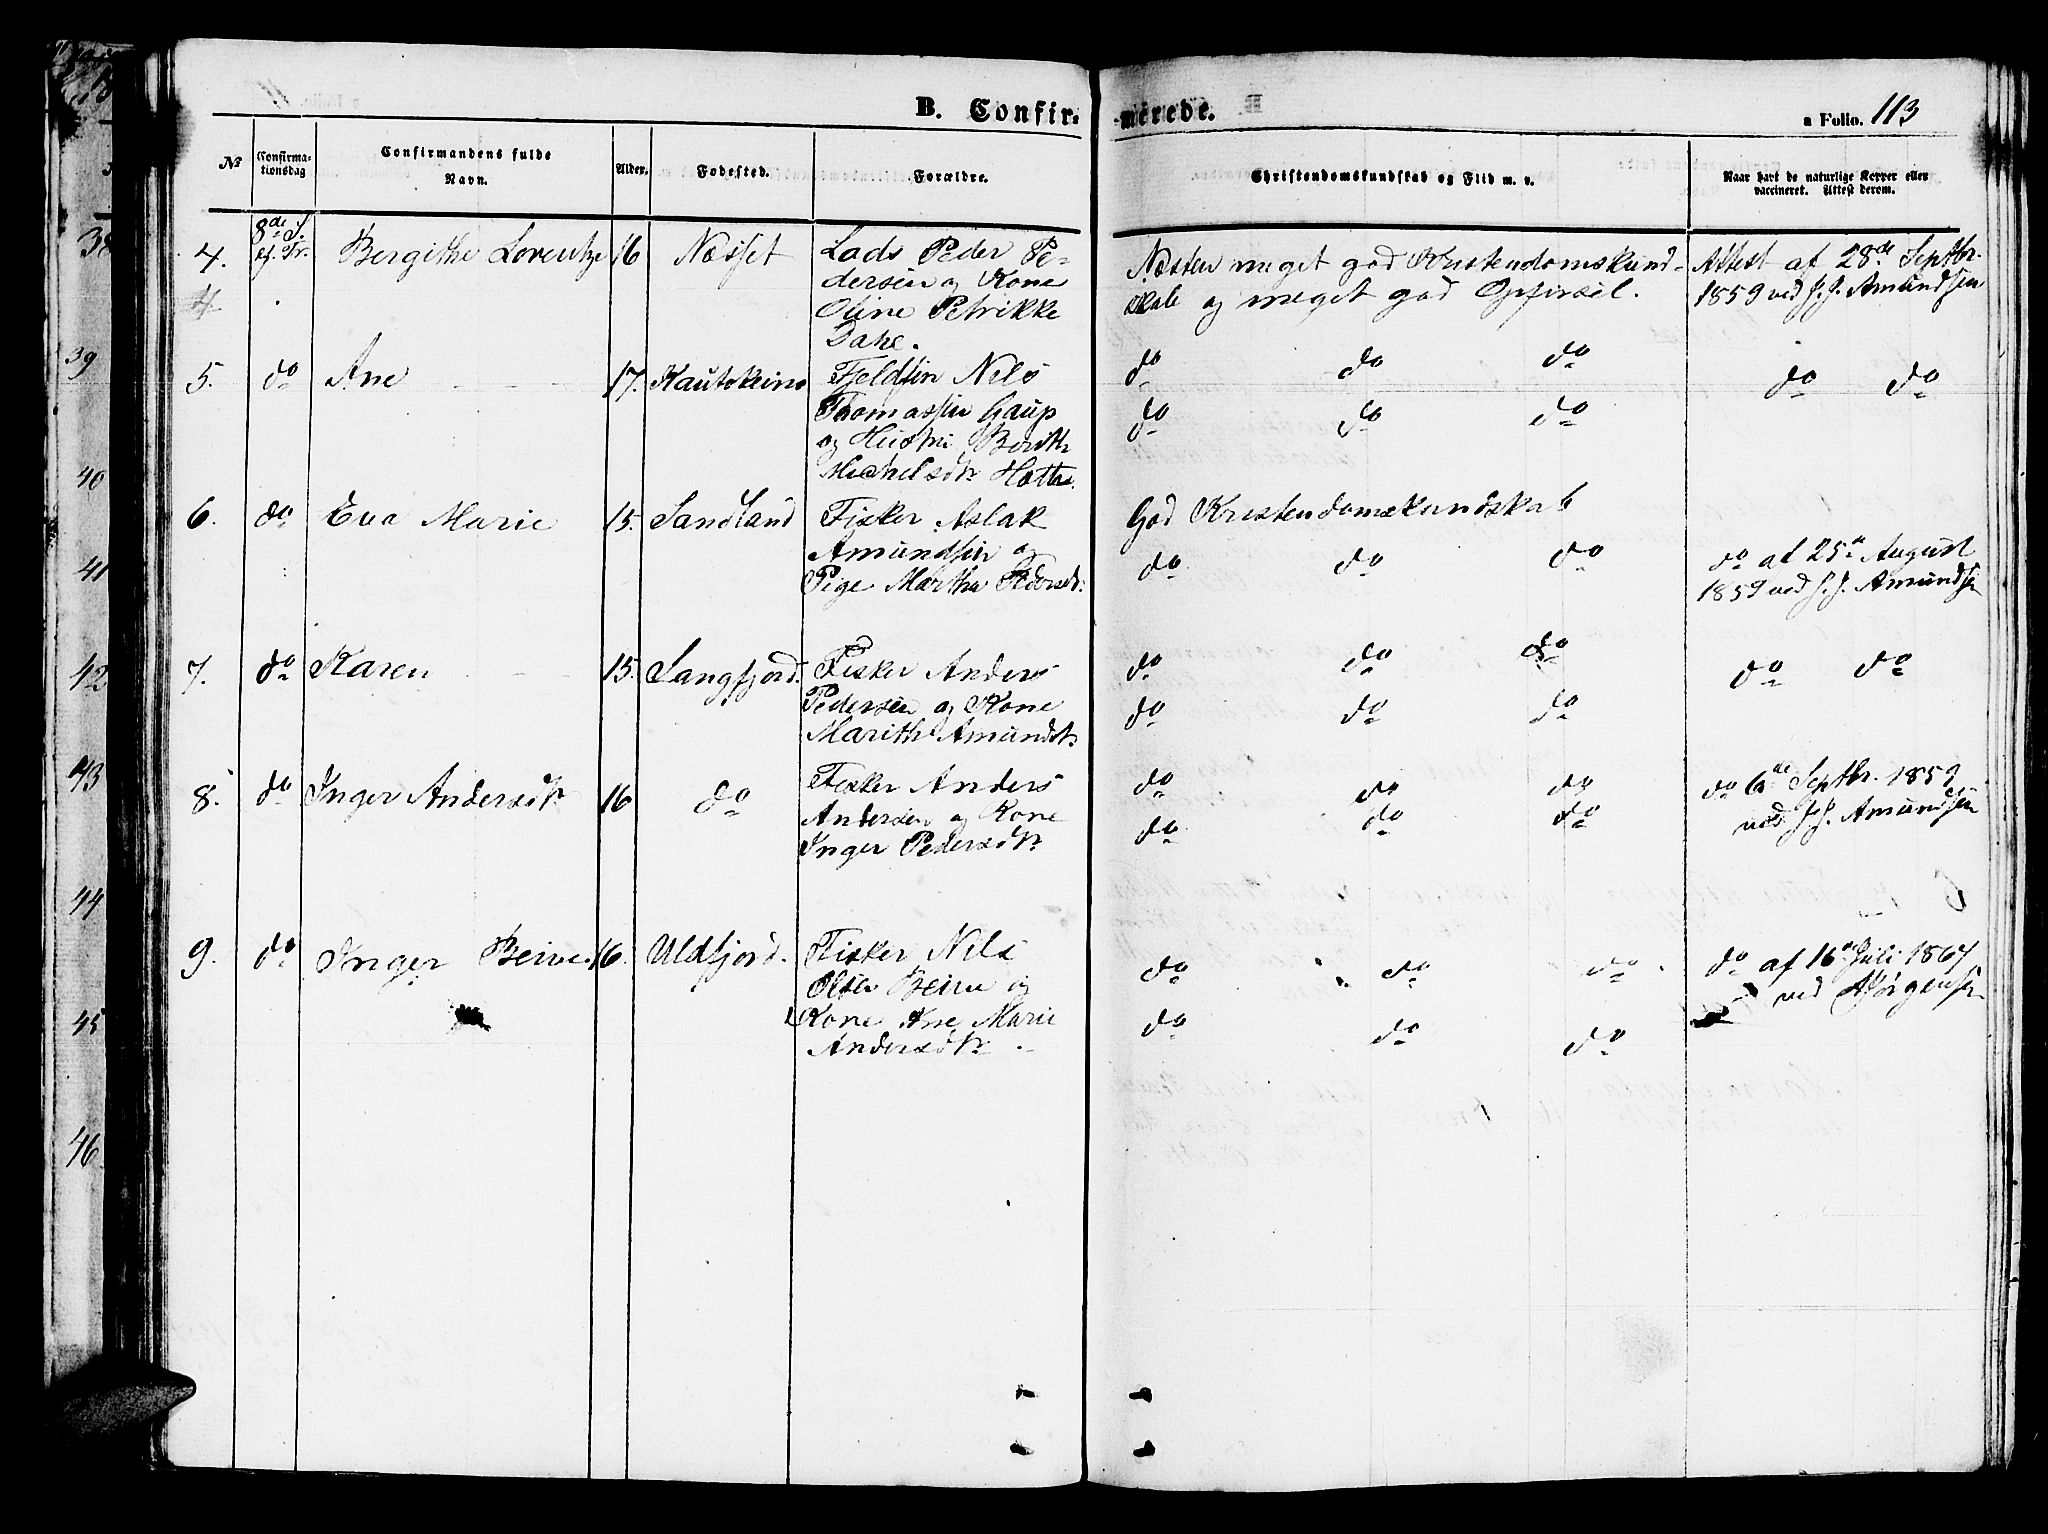 B. Confir-
merede.
a Folio. 113
№
Confirma-
tionsdag
Confirmandens fulde
Navn.
Alder.
Fødested.
Forældre.
Christendomskundskab og Flid m. v.
Naar havt de naturlige Kopper eller
vaccineret. Attest derom.
4. 8de S. Bergithe Lorentze 16 Næsset Lods Peder Pe-
ef. Tr.
dersen og Kone
Oline Petrikke
Dahl.
Næsten meget god Kristendomskund-
skab og meget god Opførsel.
Attest af 28de Septbr.
1859 ved J. J. Amundsen
4
5. do Ane 17. Kautokeino Fjeldfin Nils
Thomassen Gaup
og Hustru Berith
Michelsdtr Hætta.
do do do
do do do
do do
6. do Eva Marie 15. Sandland Fisker Aslak
Amundsen og
Pige Martha Pedersdt.
God Kristendomskundskab
do do do
do af 25de August
1859 ved J. J. Amundsen
7. do Karen 15. Langfjord. Fisker Anders
Pedersen og Kone
Marith Amundsdtr
do do do
do do do
do do
8. do Inger Andersdtr 16 do Fisker Anders
Andersen og Kone
Inger Pedersdtr
do do do
do do do
do 6de Septbr. 1859
ved J. J. Amundsen
9. do Inger Beive. 16. Uldfjord. Fisker Nils
Olsen Beive og
Kone Ane Marie
Andersdtr.
do do do
do do do
do af 16de Juli 1864
ved Jørgensen
38
39
40
41
42
43
44
45
46